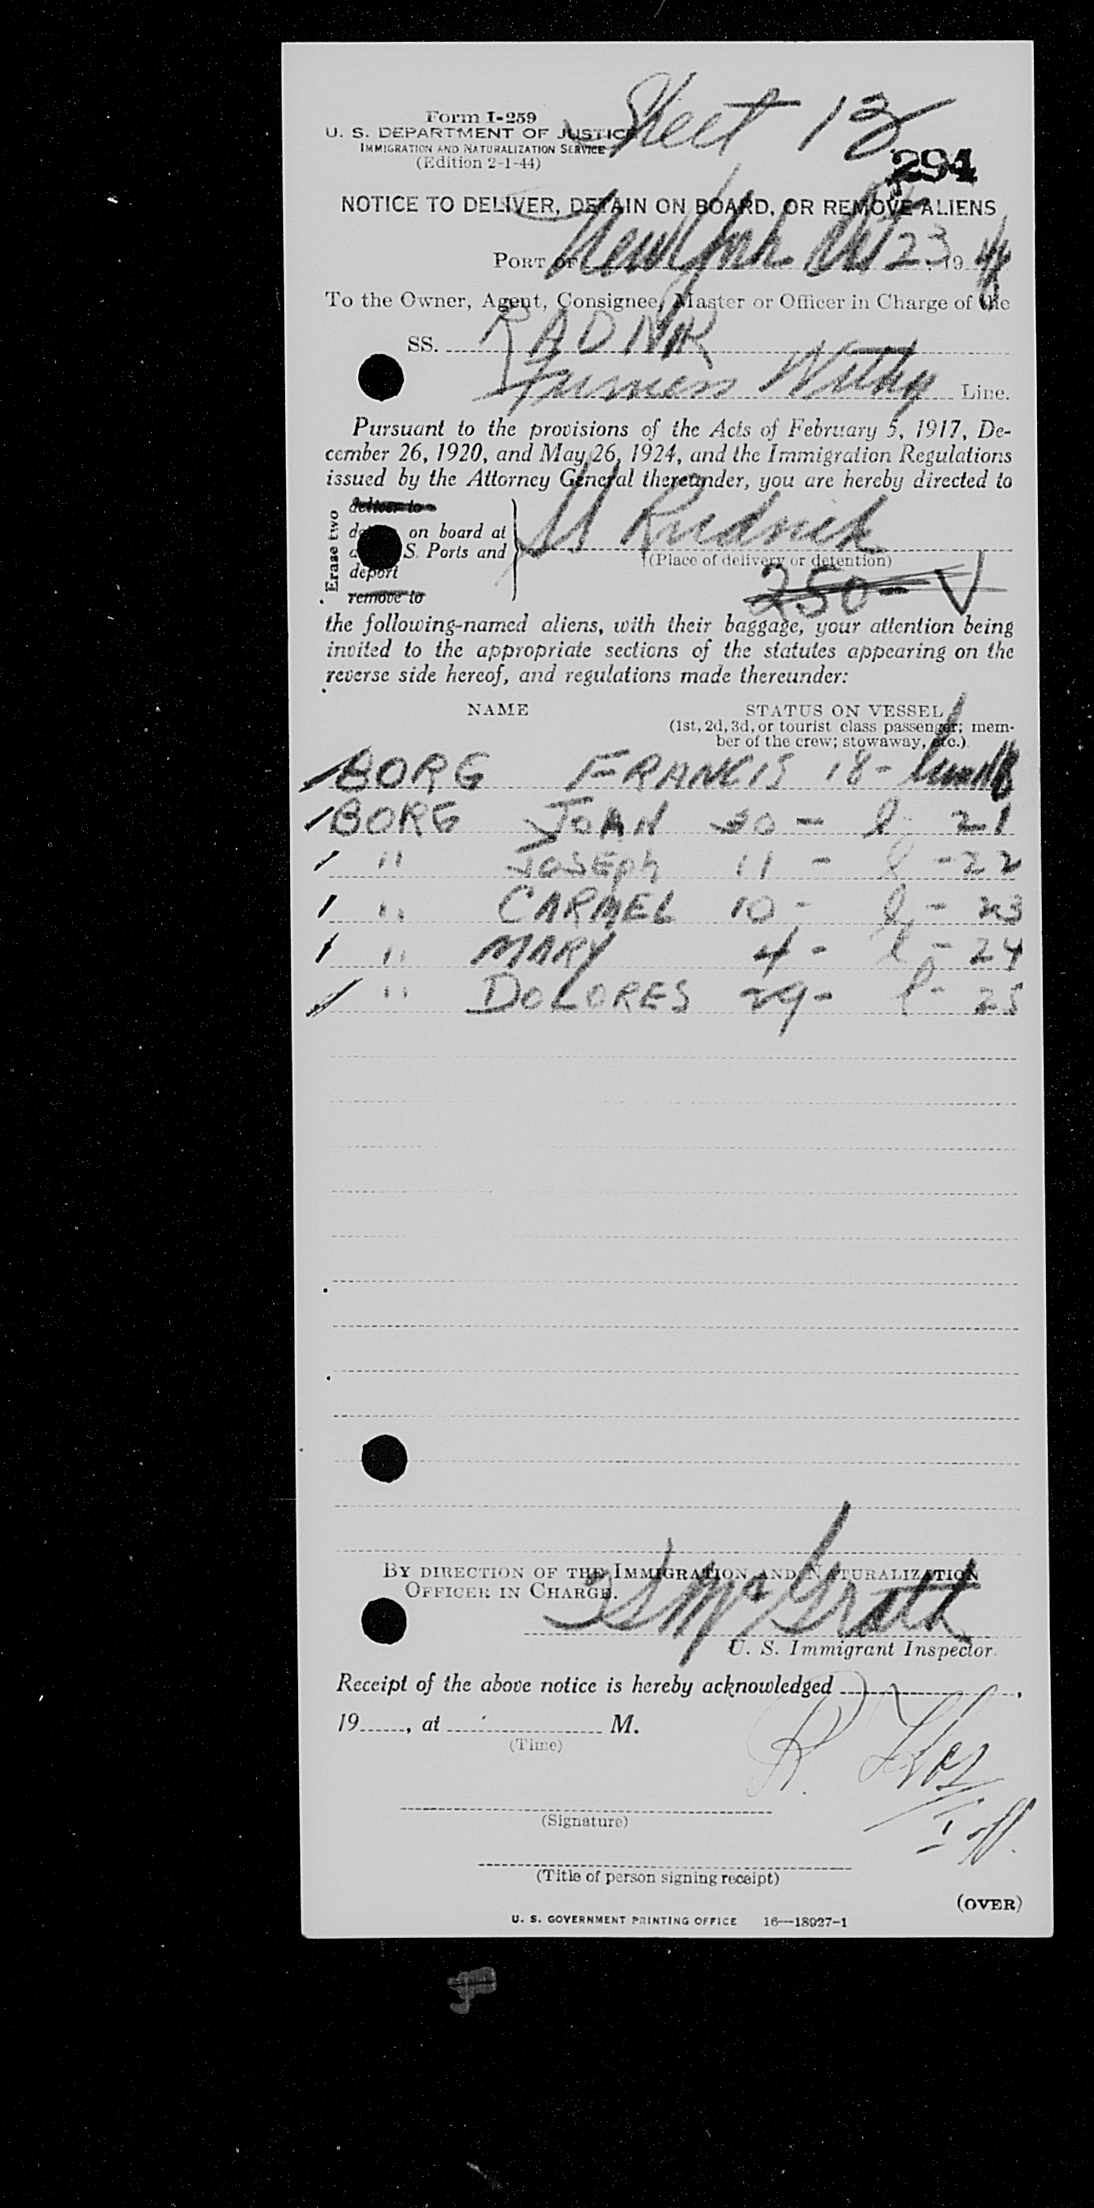 Sheet 13
Form I-259
U. S. DEPARTMENT OF JUSTICE
IMMIGRATION AND NATURALIZATION SERVICE
(Edition 2-1-44)
294
NOTICE TO DELIVER, DETAIN ON BOARD, OR REMOVE ALIENS
PORT OF New York Oct 23, 19
To the Owner, Agent, Consignee, Master or Officer in Charge of the
SS. RADNIK
Furness Withy Line.
Pursuant to the provisions of the Acts of February 5, 1917, De-
cember 26, 1920, and May 26, 1924, and the Immigration Regulations
issued by the Attorney General thereunder, you are hereby directed to
Erase two
deliver to
on board at
S. Ports and
deport
remove to
SS Radnik
(Place of delivery or detention)
250-
the following-named aliens, with their baggage, your attention being
invited to the appropriate sections of the statutes appearing on the
reverse side hereof, and regulations made thereunder:
NAME STATUS ON VESSEL
(1st, 2d, 3d, or tourist class passenger; mem-
ber of the crew; stowaway, etc.)
BORG FRANCIS 18 -
BORG JOAN 30 - 21
" JOSEPH 11 - 22
" CARMEL 10 - 23
" MARY 4 - 24
" DOLORES 29 - 25
BY DIRECTION OF THE IMMIGRATION AND NATURALIZATION
OFFICER IN CHARGE.
McGrath
U. S. Immigrant Inspector.
Receipt of the above notice is hereby acknowledged
19......, at ............ M.
(Time)
(Signature)
(Title of person signing receipt)
(OVER)
U. S. GOVERNMENT PRINTING OFFICE 16—18927-1